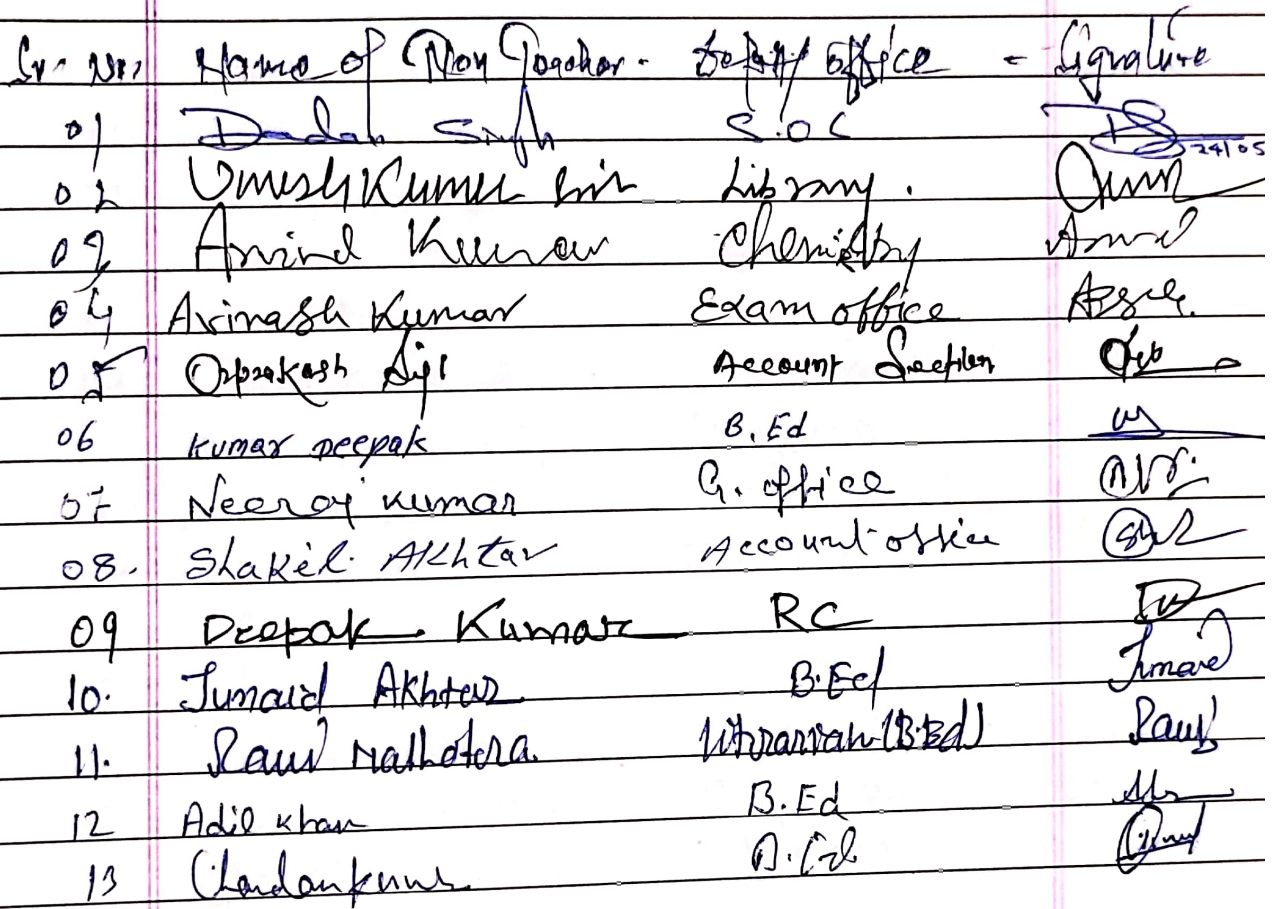 Sr. No. Name of Non Teacher - Deptt/ office - Signature
01 Dadan Singh S.O.C 24/05
02 Umesh Kumar Sir Library.
03 Arvind Kumar Chemistry Arvind
04 Avinash Kumar Exam office
05 Omprakash Account Section
06 Kumar Deepak B.Ed
07 Neeraj Kumar G. office
08. Shakil Akhtar Account office
09 Deepak Kumar RC
10. Junaid Akhtar B.Ed Junaid
11. Ravi Malhotra Librarian (B.Ed) Ravi
12 Adil Khan B.Ed
13 Chandan Kumar B.Ed